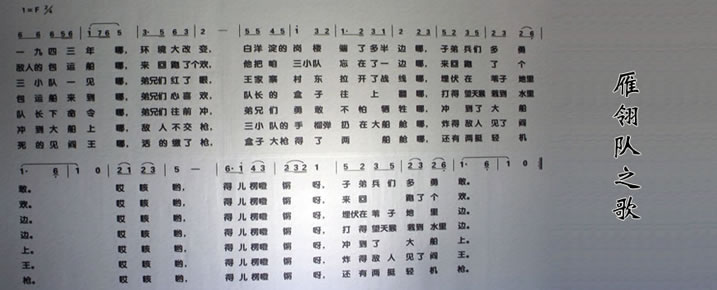 1=F 2/4
6 6 6 5 6 | 1 7 6 5 | 3· 5 6 3 | 2 — | 5 3 5 5 1 | 3 3 2 | 1· 2 3 1 | 2 1 6 5 | 5 5 3 5 | 2 6
一九四三年 哪，环境大改变，白洋淀的岗楼 骗了多半边哪，子弟兵们多勇
敌人的包运船 哪，来回跑了个欢，他把咱三小队 忘在了一边哪，来回跑了个
三小队一见 哪，弟兄们红了眼，王家寨村东 拉开了战线哪，埋伏在苇子地里
包运船来到 哪，弟兄们心喜欢，队长的盒子往上翻哪，打得望天猴栽到水里
队长下命令 哪，弟兄们往前冲，弟兄们勇敢不怕牺牲哪，冲到了大船
冲到大船上 哪，敌人不交枪，三小队的手榴弹扔在大船舱哪，炸得敌人见了阎
死的见阎王 哪，活的缴了枪，盒子大枪得了两船舱哪，还有两挺轻机
1· 6 | 1 0 | 2 1 2 3 | 5 — | 6· 1 4 3 | 3 3 2 1
敢。哎咳哟，得儿楞噔锵呀，子弟兵们多勇敢。
欢。哎咳哟，得儿楞噔锵呀，来回跑了个欢。
边。哎咳哟，得儿楞噔锵呀，埋伏在苇子地里边。
边。哎咳哟，得儿楞噔锵呀，打得望天猴栽到水里边。
上。哎咳哟，得儿楞噔锵呀，冲到了大船上。
王。哎咳哟，得儿楞噔锵呀，炸得敌人见了阎王。
枪。哎咳哟，得儿楞噔锵呀，还有两挺轻机枪。
雁翎队之歌